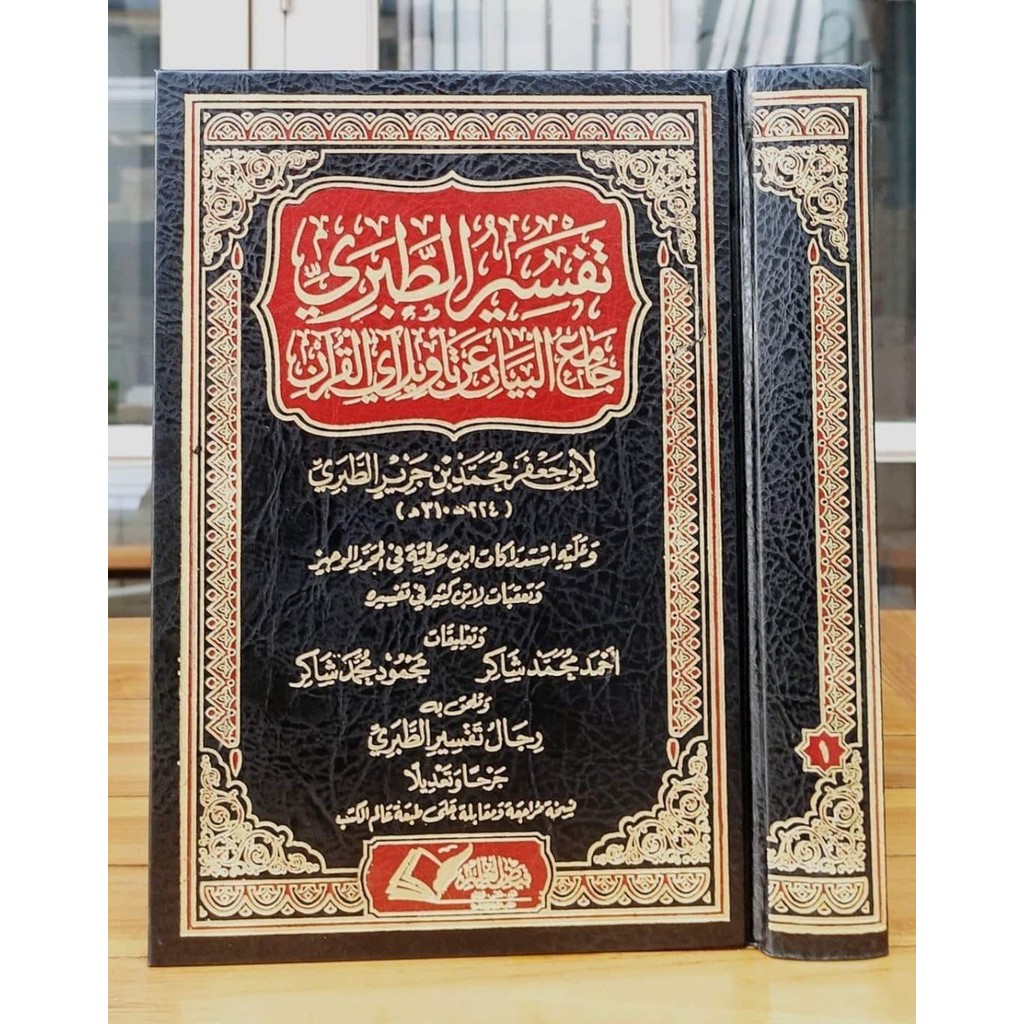 تَفْسِيرُ الطَّبَرِيِّ
جَامِعُ البَيَانِ عَنْ تَأْوِيلِ آيِ القُرْآنِ
لِأَبِي جَعْفَرَ مُحَمَّد بْنِ جَرِيْرِ الطَّبَرِيِّ
(٢٢٤ - ٣١٠ هـ)
وَعَلَيْهِ اسْتدَراكات ابن عَطِيّة في المحرر الوجيز
وتعقبات لابْن كثير في تفسيره
وَتعليقات
أحْمَد مُحَمَّد شَاكِر مَحْمُوْد مُحَمَّد شَاكِر
وَملحق به
رِجَالُ تَفْسِيرِ الطَّبَرِيِّ
جَرْحًا وَتَعْدِيلًا
نسخة مراجعة ومقابلة على طبعة عالم الكتب
١